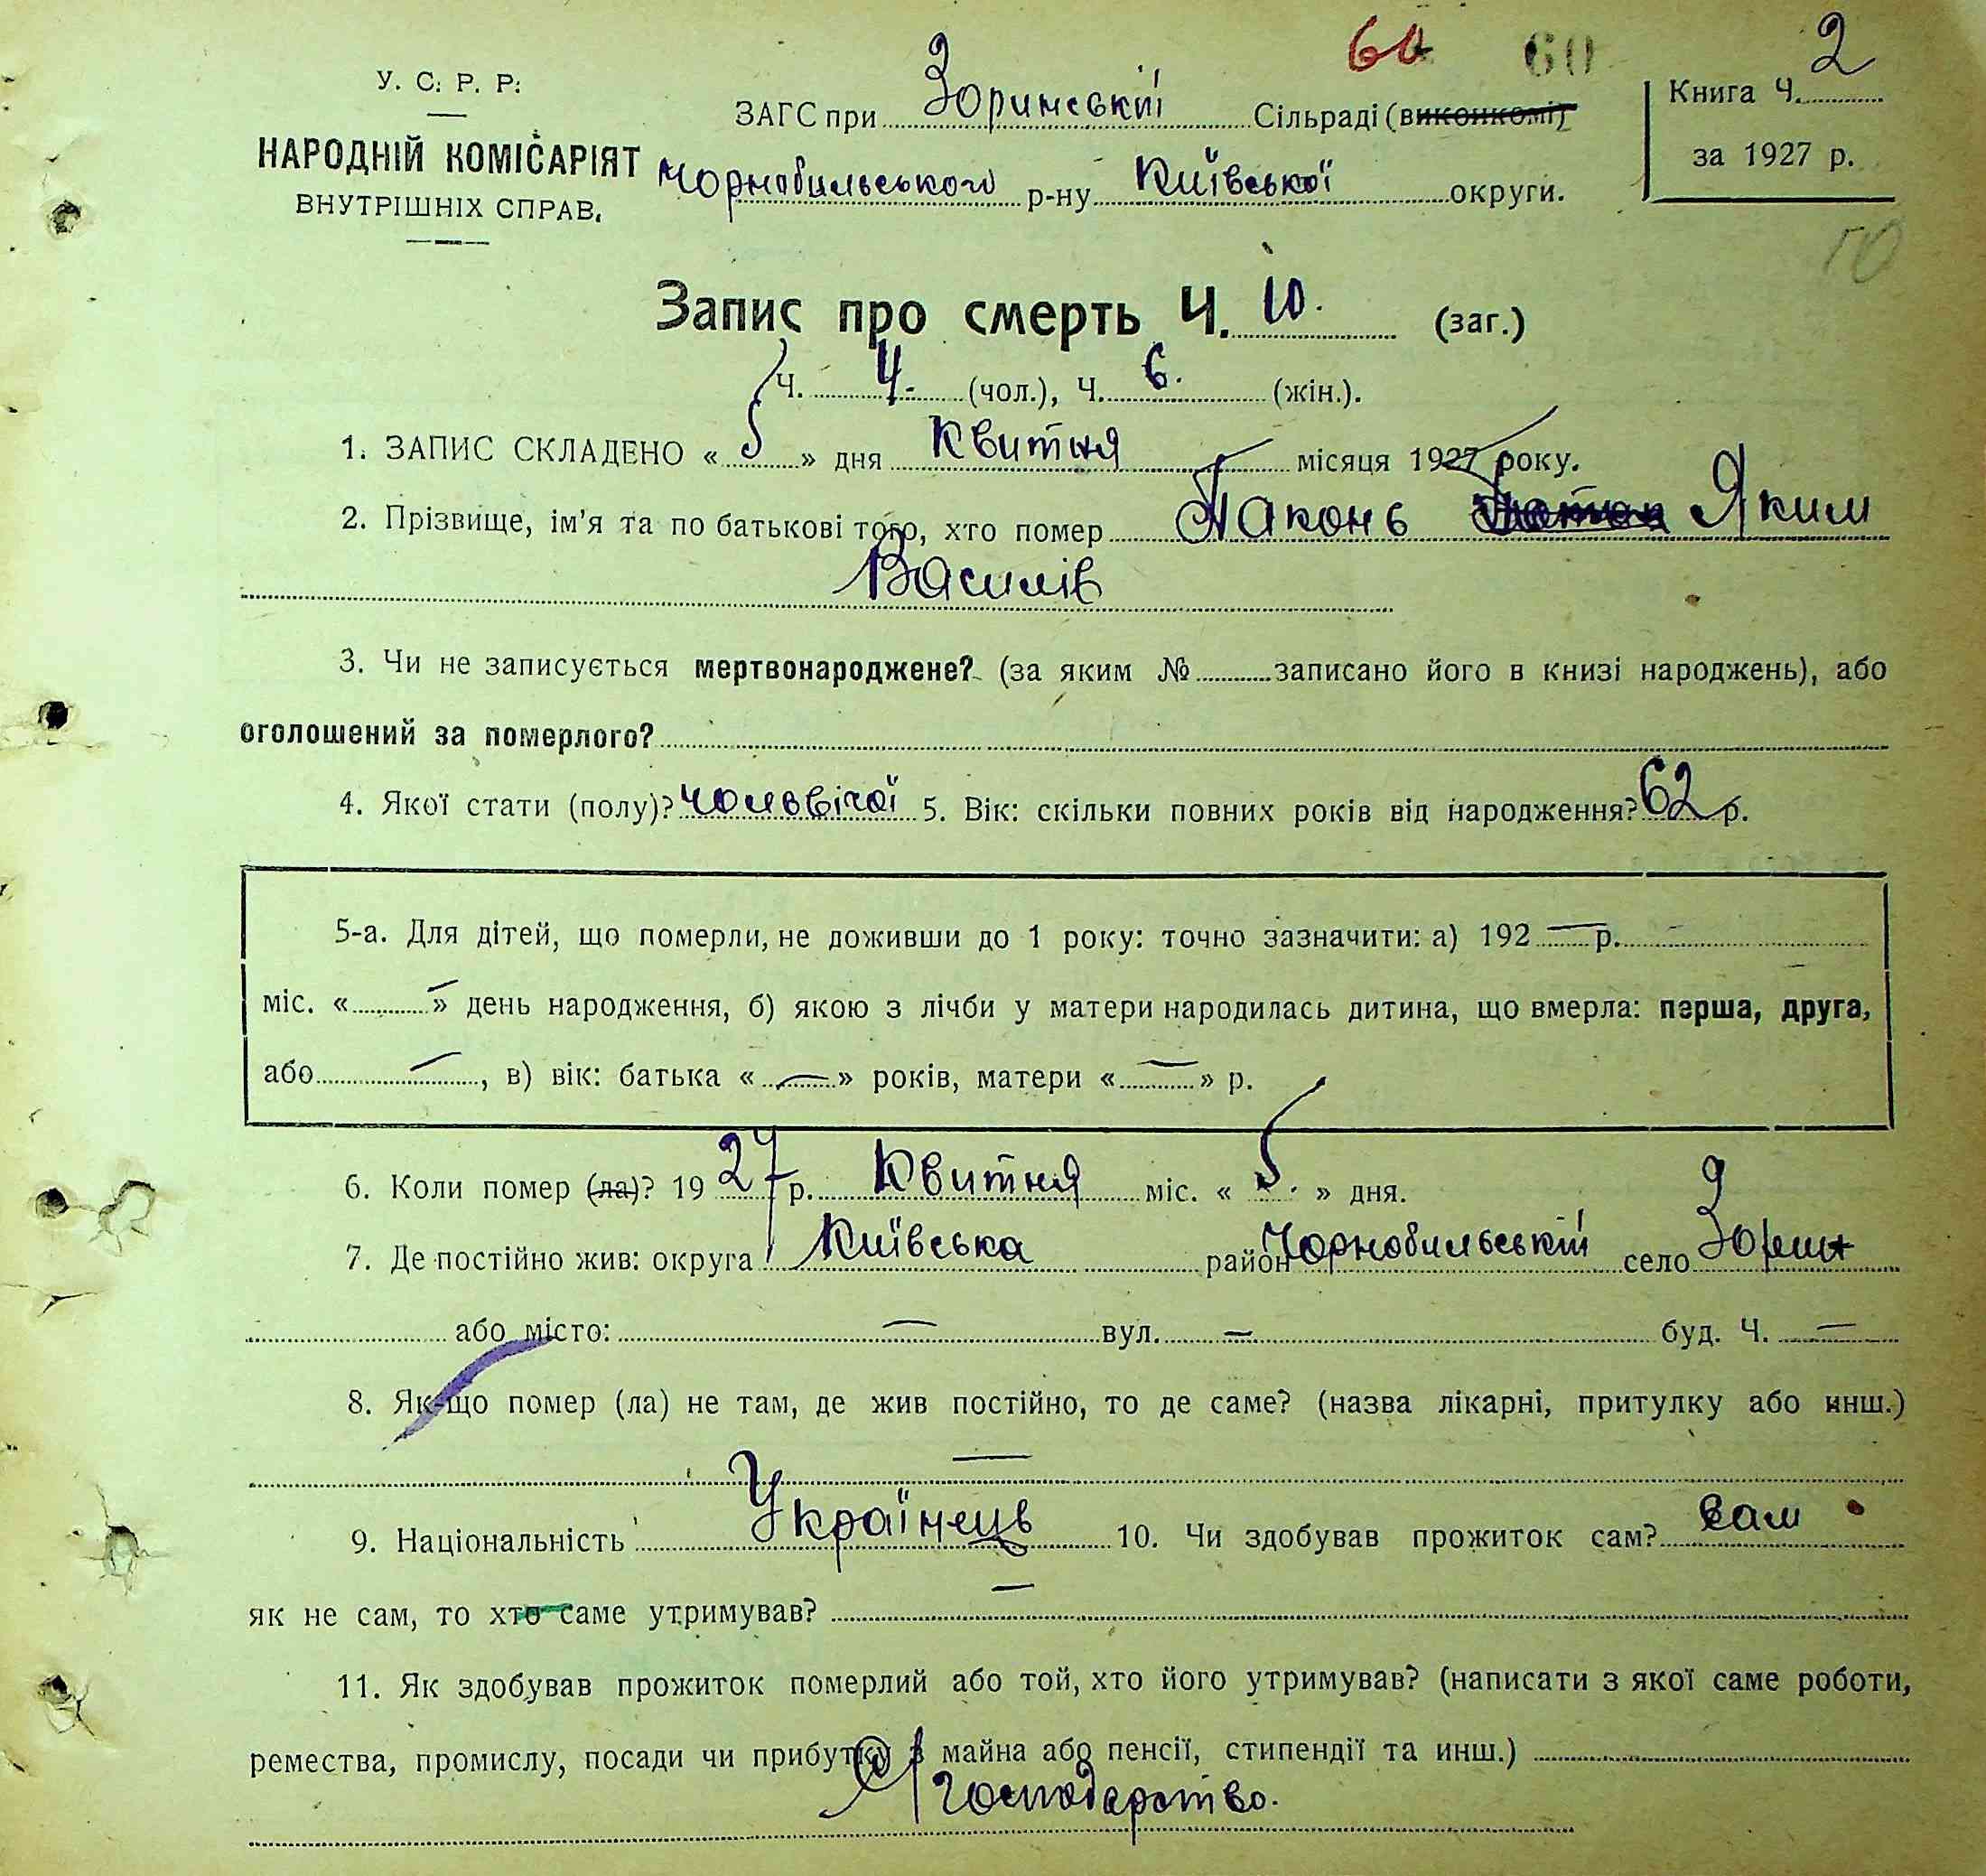 60 60
У. С. Р. Р.
НАРОДНІЙ КОМІСАРІЯТ
ВНУТРІШНІХ СПРАВ.
ЗАГС при Зоринській Сільраді (виконкомі)
Чорнобильського р-ну Київської округи.
Книга Ч. 2
за 1927 р.
Запис про смерть Ч. 10. (заг.)
Ч. 4. (чол.), Ч. 6. (жін.).
1. ЗАПИС СКЛАДЕНО « 5 » дня Квитня місяця 1927 року.
2. Прізвище, ім'я та по батькові того, хто помер Яким
Василів
3. Чи не записується мертвонароджене? (за яким № записано його в книзі народжень), або
оголошений за померлого?
4. Якої стати (полу)? чоловічої 5. Вік: скільки повних років від народження? 62 р.
5-а. Для дітей, що померли, не доживши до 1 року: точно зазначити: а) 192 — р. —
міс. « — » день народження, б) якою з лічби у матери народилась дитина, що вмерла: перша, друга,
або — , в) вік: батька « — » років, матери « — » р.
6. Коли помер (ла)? 19 27 р. Квитня міс. « 5. » дня.
7. Де постійно жив: округа Київська район Чорнобильський село Зорин
або місто: — вул. — буд. Ч. —
8. Як-що помер (ла) не там, де жив постійно, то де саме? (назва лікарні, притулку або инш.)
—
9. Національність Українець 10. Чи здобував прожиток сам? сам
як не сам, то хто саме утримував? —
11. Як здобував прожиток померлий або той, хто його утримував? (написати з якої саме роботи,
ремества, промислу, посади чи прибутку з майна або пенсії, стипендії та инш.)
С/господарство.